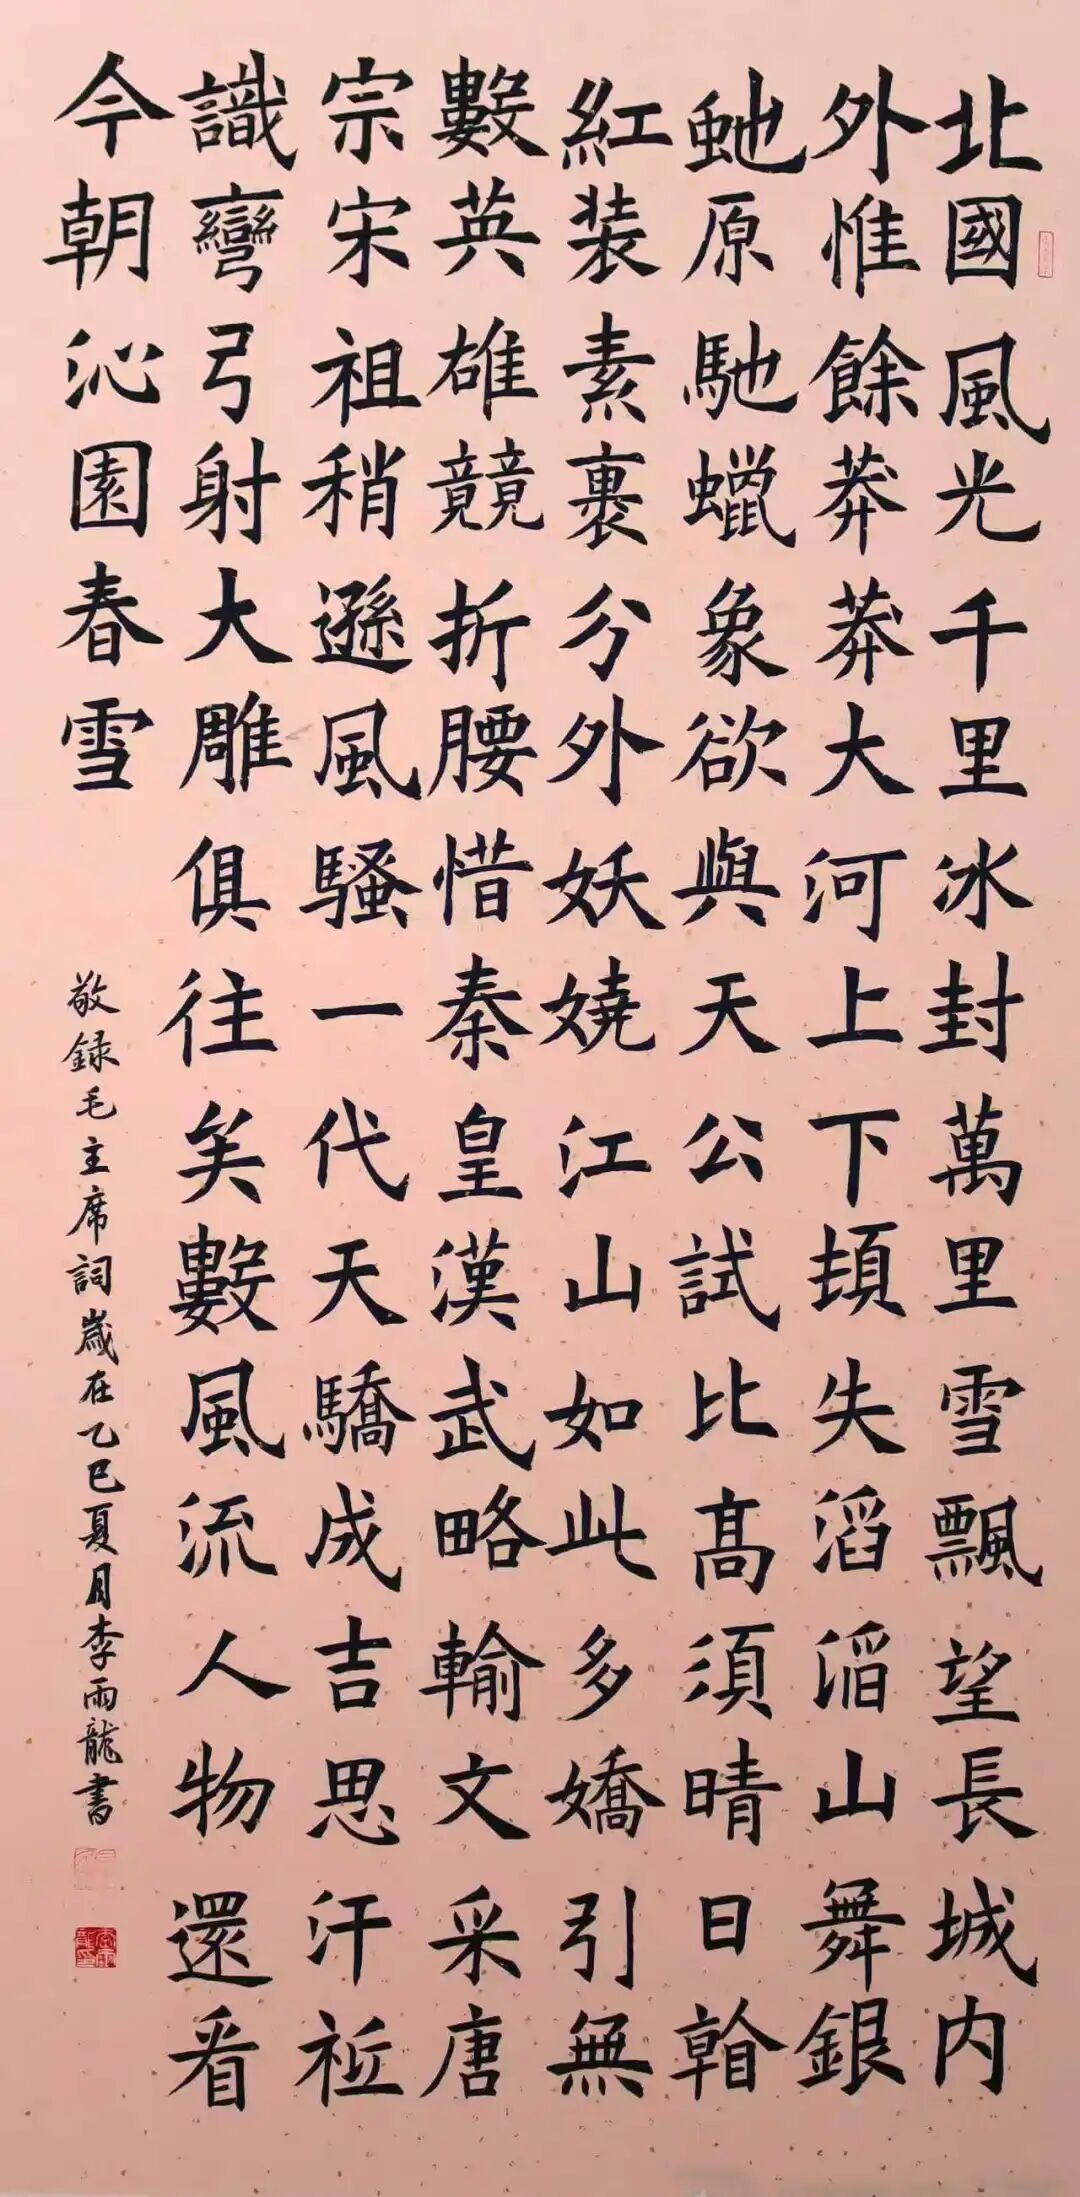 北國風光千里冰封萬里雪飄望長城内
外惟餘莽莽大河上下頓失滔滔山舞銀
虵原馳蠟象欲與天公試比髙須晴日
紅装素裹分外妖嬈江山如此多嬌引無
數英雄競折腰惜秦皇漢武略輸文采唐
宗宋祖稍遜風騷一代天驕成吉思汗祗
識彎弓射大雕俱往矣數風流人物還看
今朝沁園春雪
敬録毛主席詞嵗在乙巳夏月李雨龍書